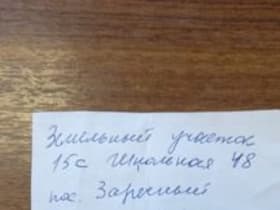 Земельный участок
15с Школьная 48
пос. Заречный